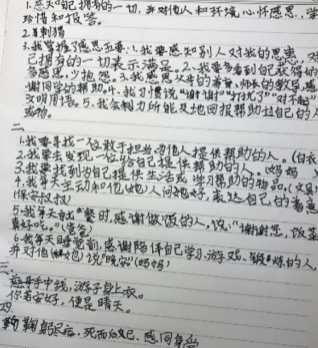 1.感天自己拥有的一切,并对他人和环境心怀感恩,学
珍惜和报答。
2.
3.我掌握了感恩五要:1.我要感知别人对我的恩惠,对
己拥有的一切表示满足。2.我要多看到自己获得的
多感恩,少抱怨。3.我感恩父母的养育,师长的教导,感
谢同学的帮助。4.我习惯说“谢谢”“打扰了”“对不起”
文明用语。5.我会制力所能及地回报帮助过自己的人
或物。
二、
1.我要寻找一位敢于担当为他人提供帮助的人。(白衣
2.我要去发现一位给自己提供帮助的人。(妈妈
3.我要找到为自己提供生活或学习帮助的物品。(文具
4.我每天主动和他(她)人问她好,表达自己的善意
(保安叔叔)
5.我每天自出餐时,感谢做饭的人,说:“谢谢您,饭菜
真好吃。”(爸爸)
6.我每天睡觉前,感谢陪伴自己学习、游戏、锻炼的人,
并对他(她)说“晚安”(妈妈)
三、
慈母手中线,游子身上衣。
你若安好,便是晴天。
四、
鞠躬尽瘁,死而后已、感同身受